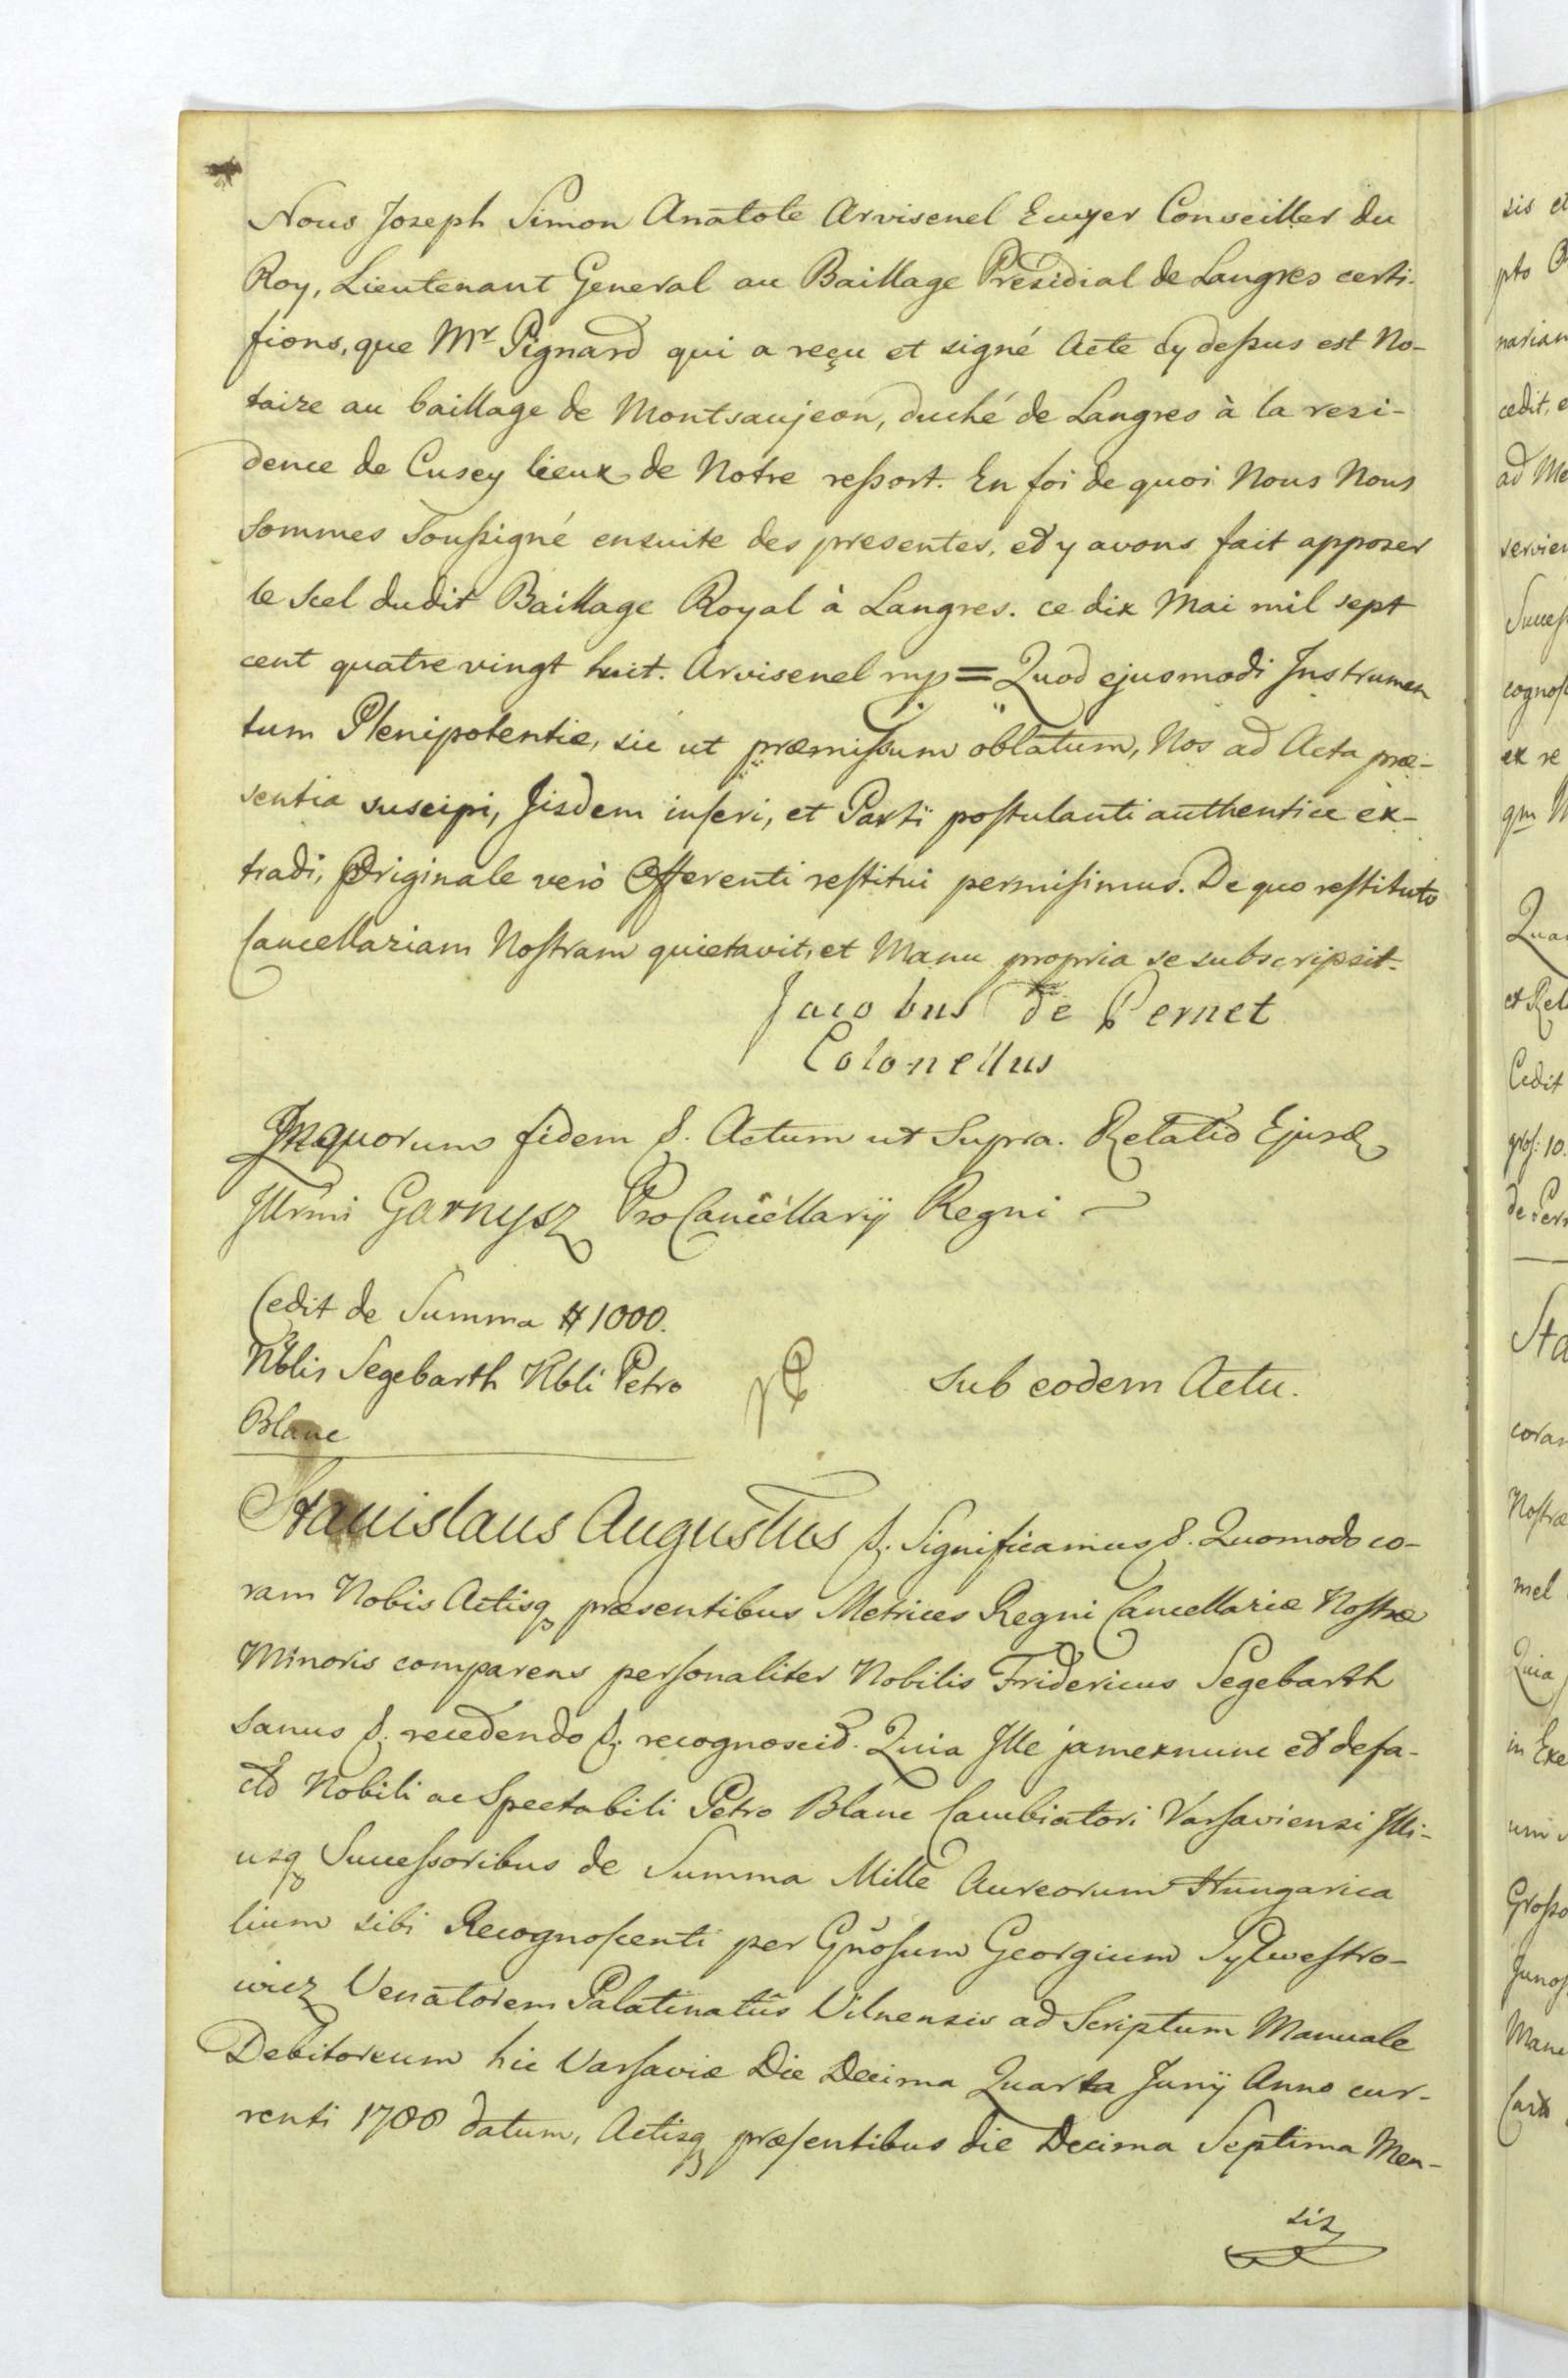 Nous Joseph Simon Anatole Arvisenel Ecuyer Conseiller du
Roy, Lieutenant General au Baillage Presidial de Langres certi-
fions, que Mr Pignard qui a reçu et signé Acte cy deſsus est No-
taire au baillage de Montsaujeon, duché de Langres à la resi-
dence de Cusey lieux de Notre reſsort. En foi de quoi Nous Nous
Sommes Souſsigné ensuite des presentes, et y avons fait apposer
le Scel dudit Baillage Royal à Langres. ce dix Mai mil sept
cent quatre vingt huit. Arvisenel mp = Quod ejusmodi Instrumen
tum Plenipotentiæ, sic ut præmiſsum oblatum, Nos ad Acta præ-
sentia suscipi, Jisdem inſeri, et Parti poſtulanti authentice ex-
tradi, Originale verò Offerenti reſtitui permiſimus. De quo reſtituto
Cancellariam Noſtram quietavit, et Manu propria se subscripsit.
Jacobus de Pernet
Colonellus
In quorum fidem &. Actum ut Supra. Relatio Ejusd
Illrmi Garnysz ProCancellarij Regni
Cedit de Summa # 1000.
Nblis Segebarth Nbli Petro
Blanc
Sub eodem Actu.
Stanislaus Augustus &. Significamus &. Quomodo co-
ram Nobis Actisq præsentibus Metrices Regni Cancellariæ Noſtræ
Minoris comparens perſonaliter Nobilis Fridericus Segebarth
Sanus &. recedendo &. recognoscit. Quia Ille jamexnunc et defa-
cto Nobili ac Spectabili Petro Blanc Cambiatori Varſaviensi Illi-
usq Succeſsoribus de Summa Mille Aureorum Hungarica
lium sibi Recognoſcenti per Gnosum Georgium Sylweſtro-
wicz Venatorem Palatinatûs Vilnensis ad Scriptum Manuale
Debitoreum hic Varſaviæ Die Decima Quarta Junij Anno cur-
renti 1788 datum, Actisq præſentibus die Decima Septima Men-
sis